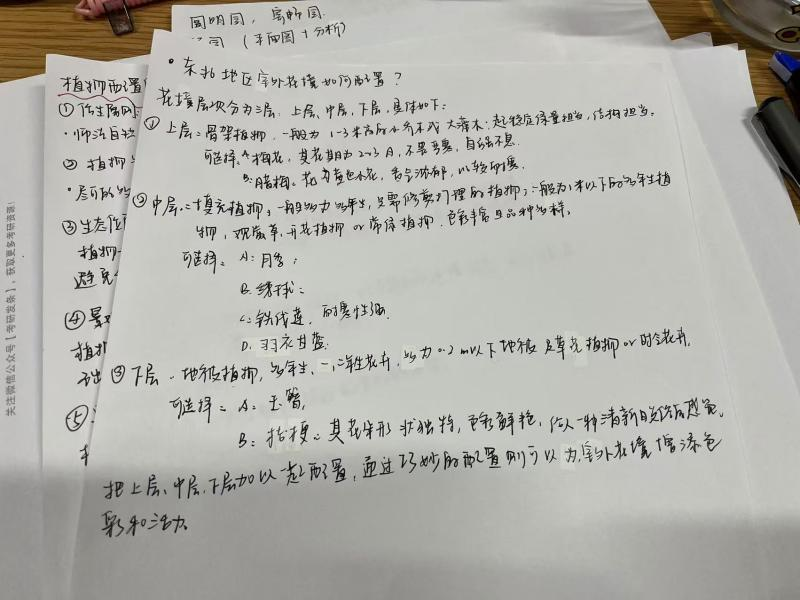 圆明园，寄畅园
(平面图+分析)
植物配置
①
·师法自然
②植物
③生态位
植物
避免
④景
植
⑤
关注微信公众号【考研发条】，获取更多考研资源！
·东北地区室外花境如何配置？
花境层次分为三层，上层、中层、下层，具体如下：
①上层：骨架植物，一般为1-3米高的小乔木或大灌木：起稳定绿量担当，结构担当。
可选择：A：梅花，其花期为2-3月，不畏严寒，自强不息。
B：腊梅，花为黄色小花，香气浓郁，比较耐寒。
②中层：填充植物，一般为多年生，只需修剪打理的植物；一般为1米以下的多年生植
物，观赏草，开花植物or常绿植物，色彩丰富且品种多样。
可选择：A：月季；
B：绣球：
C：铁线莲，耐寒性强
D：羽衣甘蓝
③下层：地被植物，多年生、一、二年生花卉，多为0.2m以下地被及草花植物or时令花卉。
可选择：A：玉簪，
B：桔梗：其花朵形状独特，色彩鲜艳，给人一种清新自然的感觉。
把上层、中层、下层加以一起配置，通过巧妙的配置则可以为室外花境增添色
彩和活力